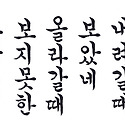 내려갈때
보았네
올라갈때
보지못한